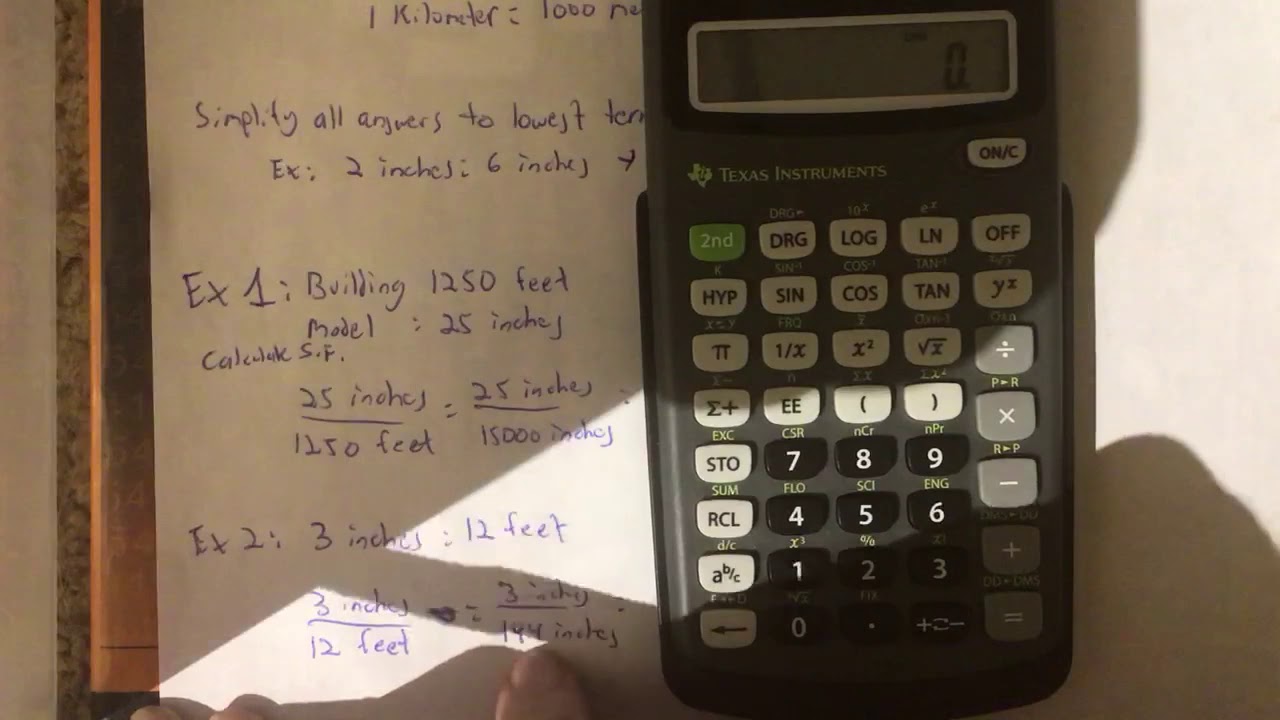 1 Kilometer = 1000 me
Simplify all answers to lowest ter
Ex: 2 inches: 6 inches →
Ex 1: Building 1250 feet
Model : 25 inches
Calculate S.F.
25 inches = 25 inches :
1250 feet 15000 inches
Ex 2: 3 inches : 12 feet
3 inches = 3 inches :
12 feet 144 inches
0.
ON/C
TEXAS INSTRUMENTS
DRG► 10ˣ eˣ
2nd DRG LOG LN OFF
K SIN⁻¹ COS⁻¹ TAN⁻¹ ˣ√y
HYP SIN COS TAN yˣ
x⇄y FRQ x̄ σxn-1 σxn
π 1/x x² √x ÷
Σ- n Σx Σx² P►R
Σ+ EE ( ) ×
EXC CSR nCr nPr R►P
STO 7 8 9 −
SUM FLO SCI ENG DMS►DD
RCL 4 5 6 +
d/c x³ % x! DD►DMS
aᵇ/c 1 2 3 =
F◄►D ³√x FIX
← 0 . +⇄−